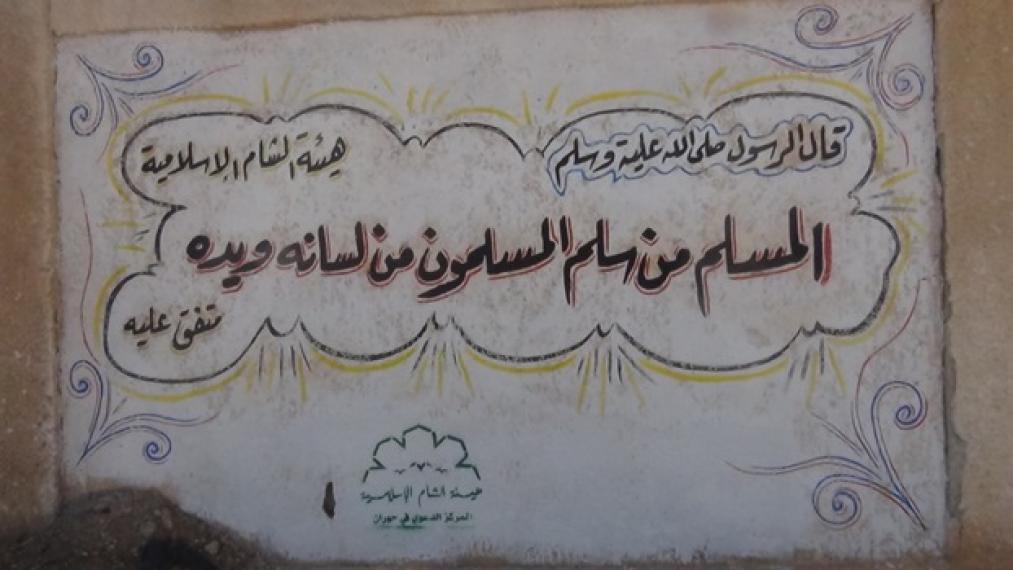 قال الرسول صلى الله علية وسلم
هيئة الشام الإسلامية
المسلم من سلم المسلمون من لسانه ويده
متفق عليه
هيئة الشام الإسلامية
المركز الدعوي في حوران